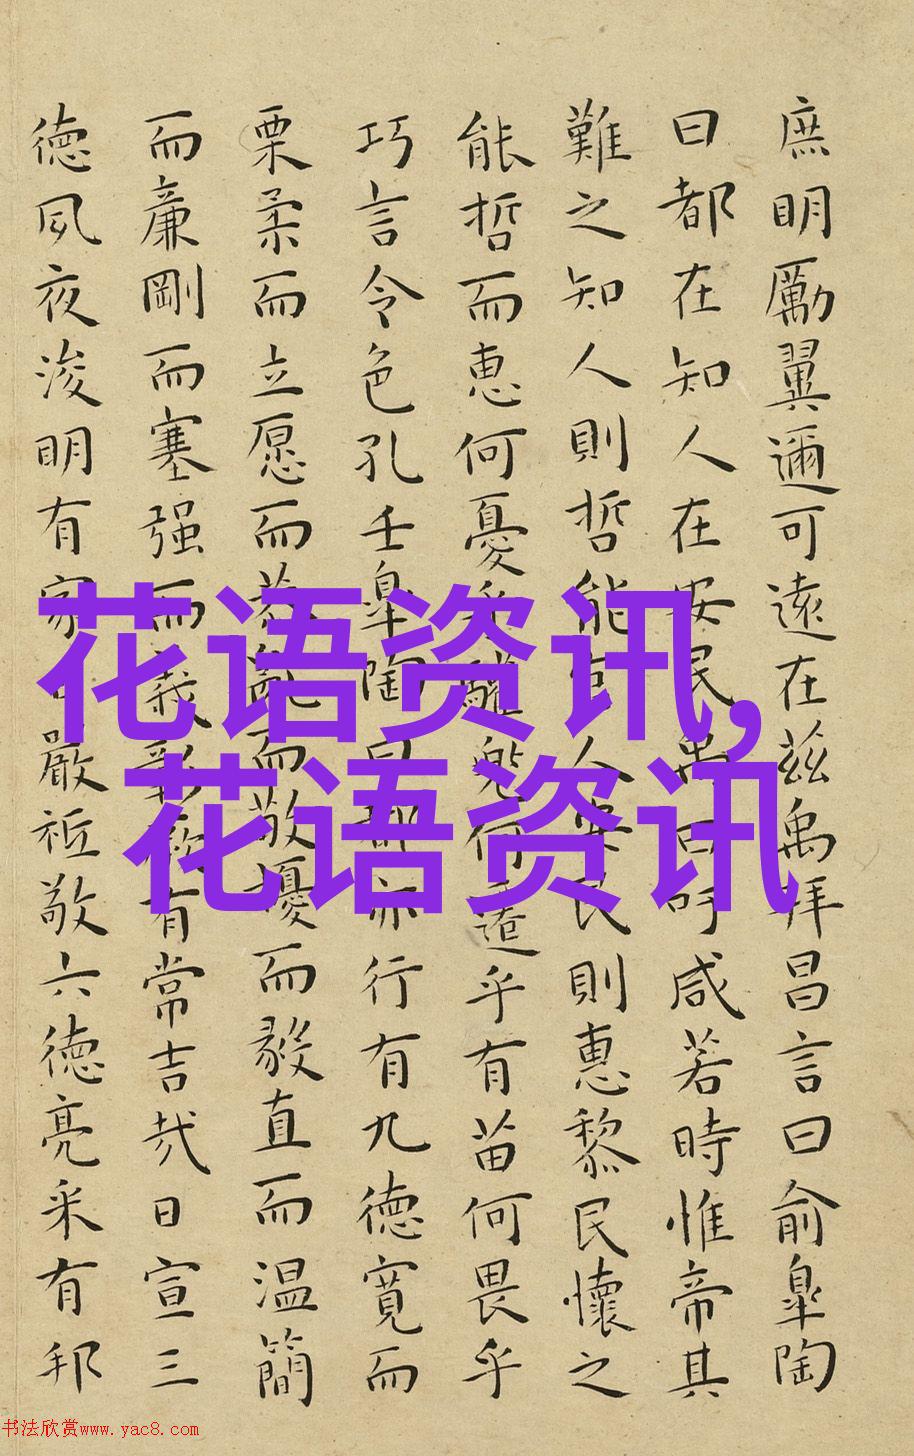 庶明勵翼邇可遠在茲禹拜昌言曰俞皐陶
曰都在知人在安民禹曰吁咸若時惟帝其
難之知人則哲能官人安民則惠黎民懷之
能哲而惠何憂乎驩兜何遷乎有苗何畏乎
巧言令色孔壬皐陶曰都亦行有九德寬而
栗柔而立愿而恭亂而敬擾而毅直而温簡
而廉剛而塞强而義彰厥有常吉哉日宣三
德夙夜浚明有家日嚴祗敬六德亮采有邦
花语资讯,
花语资讯
书法欣赏www.yac8.com